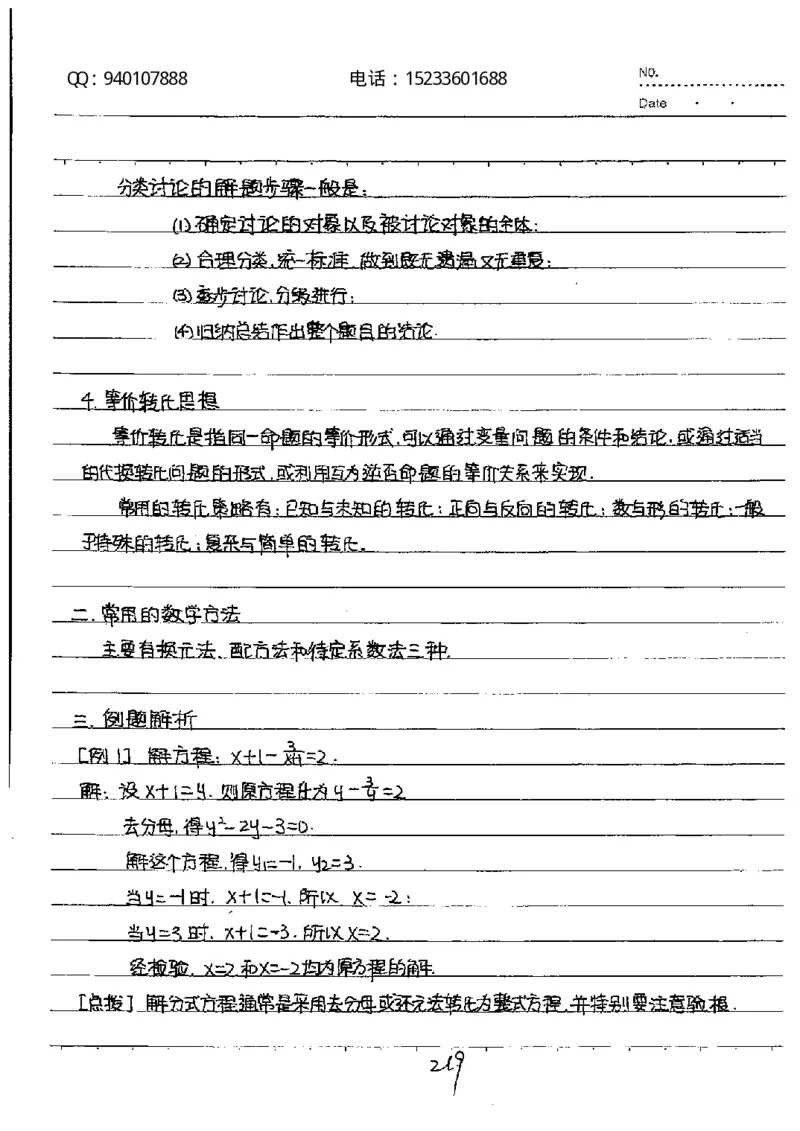 QQ：940107888 电话：15233601688 No.
Date · ·
分类讨论的解题步骤一般是：
(1)确定讨论的对象以及被讨论对象的全体；
(2)合理分类，统一标准，做到既无遗漏又无重复；
(3)逐步讨论，分级进行；
(4)归纳总结作出整个题目的结论.
4.等价转化思想
等价转化是指同一命题的等价形式，可以通过变量问题的条件和结论，或通过适当
的代换转化问题的形式，或利用互为逆否命题的等价关系来实现.
常用的转化策略有：已知与未知的转化；正向与反向的转化；数与形的转化；一般
于特殊的转化；复杂与简单的转化。
二.常用的数学方法
主要有换元法、配方法和待定系数法三种.
三.例题解析
[例1] 解方程：x+1-3/(x+1)=2.
解：设x+1=y，则原方程化为y-3/y=2
去分母，得y²-2y-3=0.
解这个方程，得y₁=-1，y₂=3.
当y=-1时，x+1=-1，所以 x=-2；
当y=3时，x+1=-3.所以x=2.
经检验，x=2和x=-2均为原方程的解.
[点拨] 解分式方程通常是采用去分母或还元法转化为整式方程，并特别要注意验根.
219